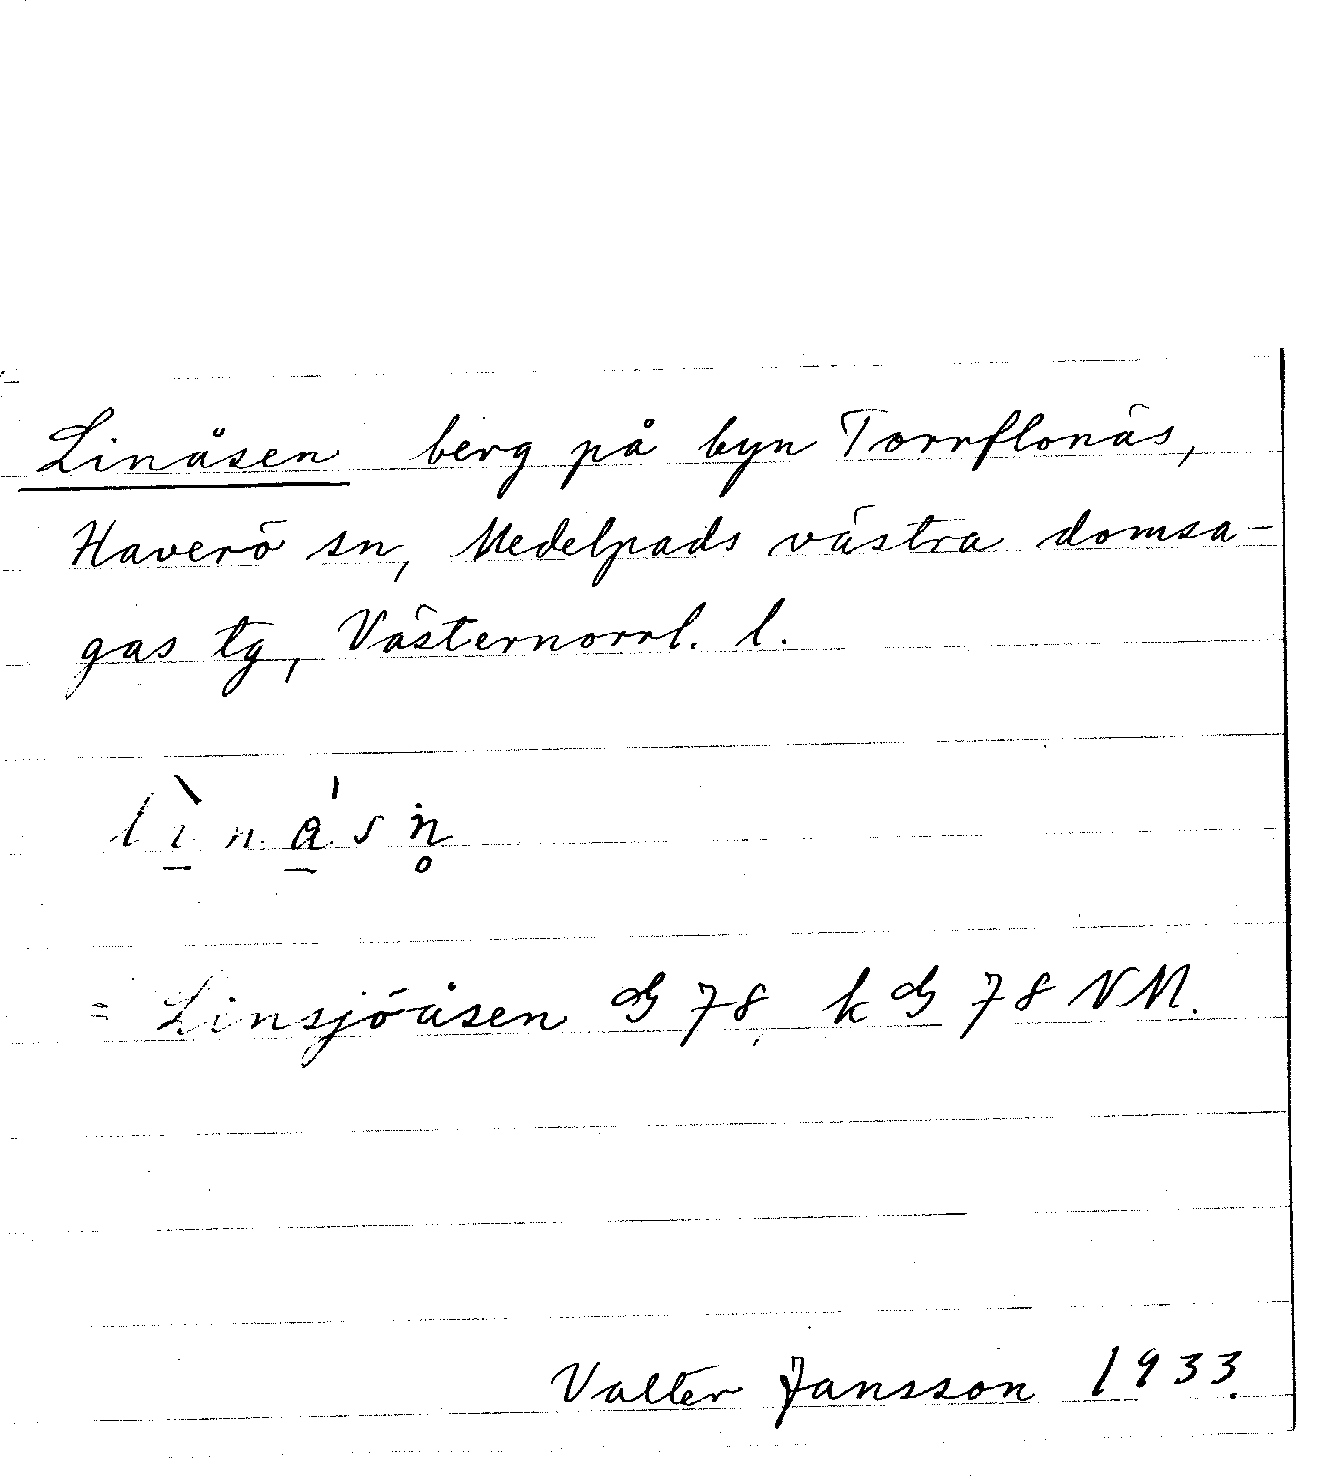 Linåsen berg på byn Torrflonäs,
Haverö sn, Medelpads västra domsa-
gas tg, Västernorrl. l.
lìnåsn̥
= Linsjöåsen G 78, k G 78 NM.
Valter Jansson 1933.